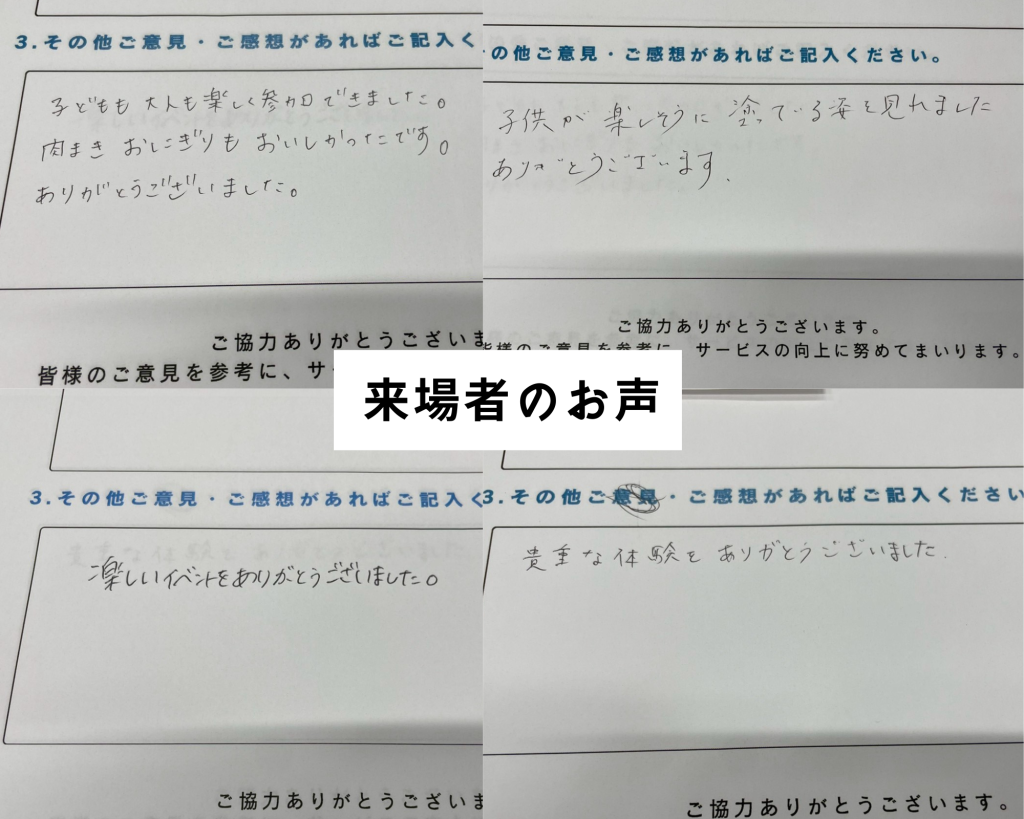 3.その他ご意見・ご感想があればご記入く
子どもも 大人も楽しく参加できました。
肉まき おにぎりも おいしかったです。
ありがとうございました。
ご協力ありがとうございま
皆様のご意見を参考に、サー
の他ご意見・ご感想があればご記入ください。
子供が 楽しそうに 塗っている姿を見れました
ありがとうございます.
ご協力ありがとうございます。
皆様のご意見を参考に、サービスの向上に努めてまいります。
来場者のお声
3.その他ご意見・ご感想があればご記入く
楽しいイベントをありがとうございました。
ご協力ありがとうございま
3.その他ご意見・ご感想があればご記入ください
貴重な体験を ありがとうございました.
ご協力ありがとうございます。